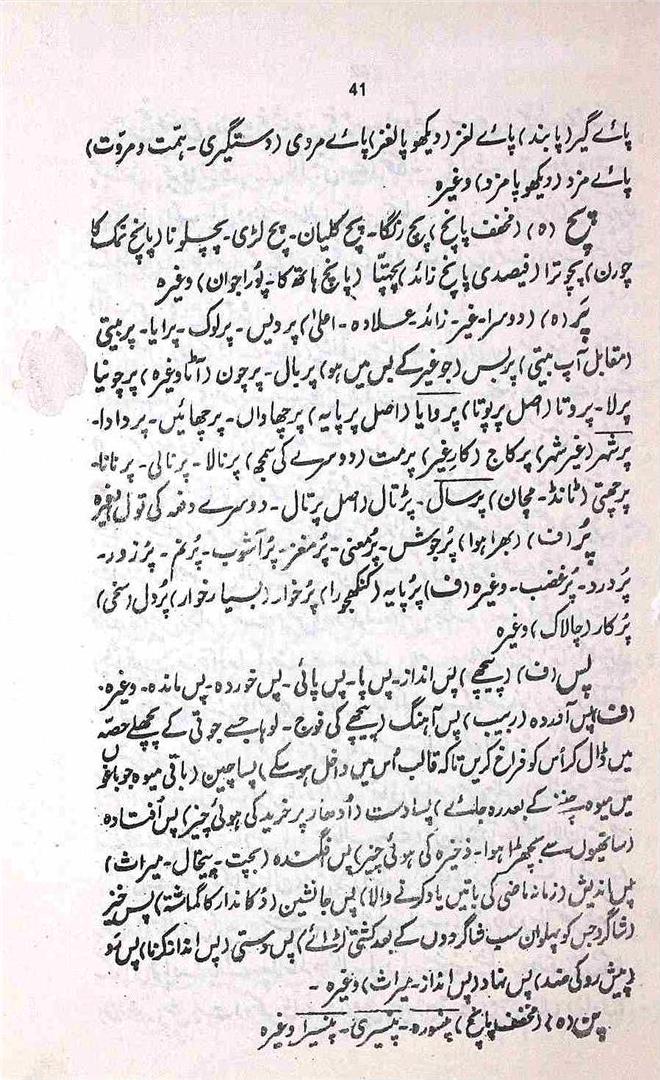 41
پائے گیر (پابند) پائے لغز (دیکھو پالغز) پائے مردی (دستگیری۔ ہمّت و مروّت)
پائے مزد (دیکھو پامزد) وغیرہ
پچ (ہ) (مخفف پانچ) پچ رنگا۔ پچ کلیان۔ پچ لڑی۔ پچلونا (پانچ نمک کا
چورن) پچوترا (فیصدی پانچ زائد) پچہتّا (پانچ ہاتھ کا۔ پورا جوان) وغیرہ
پَر (ہ) (دوسرا۔ غیر۔ زائد۔ علاوہ۔ اعلیٰ) پردیس۔ پرلوک۔ پرایا۔ پربیتی
(مقابل آپ بیتی) پربس (جو غیر کے بس میں ہو) پربال۔ پرچون (آٹا وغیرہ) پرچونیا
پرلا۔ پروتا (اصل پرپوتا) پروایا (اصل پرپایہ) پرچھاواں۔ پرچھائیں۔ پردادا۔
پرشہر (غیر شہر) پرکاج (کارِ غیر) پرمت (دوسرے کی سمجھ) پرنالا۔ پرنالی۔ پرنانا۔
پرچھتی (ٹانڈ۔ مچان) پرسال۔ پڑتال (اصل پرتال۔ دوسرے دفعہ کی تول) وغیرہ
پُر (ف) (بھرا ہوا) پُرجوش۔ پُرمعنی۔ پُرمغز۔ پُرآشوب۔ پُرنم۔ پُرزور۔
پُردرد۔ پُرغضب۔ وغیرہ (ف) پُرپایہ (کنکھجورا) پُرخوار (بسیارخوار) پُردل (سخی)
پُرکار (چالاک) وغیرہ
پس (ف) (پیچھے) پس انداز۔ پس پا۔ پس پائی۔ پس خوردہ۔ پس ماندہ۔ وغیرہ۔
(ف) پس آفردہ (ربیب) پس آہنگ (پیچھے کی فوج۔ لوہا جسے جوتی کے پچھلے حصّہ
میں ڈال کر اُس کو فراخ کریں تاکہ قالب اُس میں داخل ہوسکے) پساچین (باقی میوہ جو باغوں
میں میوہ چننے کے بعد رہ جائے) پسادست (اُدھار پر خرید کی ہوئی چیز) پس اُفتادہ
(ساتھیوں سے بچھڑا ہوا۔ ذخیرہ کی ہوئی چیز) پس فگندہ (بچت۔ پیخال۔ میراث)
پس اندیش (زمانہ ماضی کی باتیں یاد کرنے والا) پس جانشین (دکاندار کا گماشتہ) پس خیز
(شاگرد جس کو پہلوان سب شاگردوں کے بعد کشتی لڑائے) پس دستی (پس انداز کرنا) پس رَو
(پیش رو کی ضد) پس نہاد (پس انداز۔ میراث) وغیرہ۔
پن (ہ) (مخفف پانچ) پنسورہ۔ پنسیری۔ پنسیرا وغیرہ